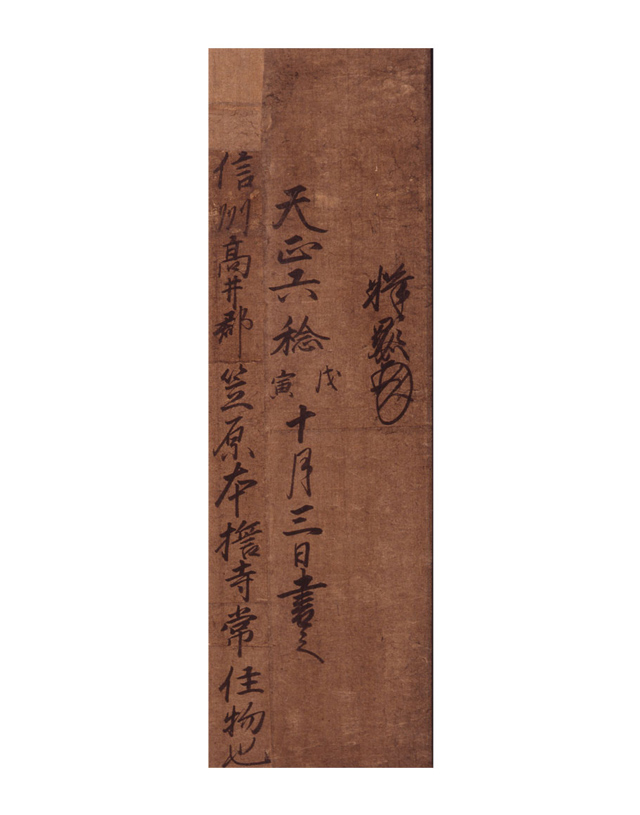 釋顕如
天正六稔戊寅十月三日書之
信州高井郡笠原本擔寺常住物也